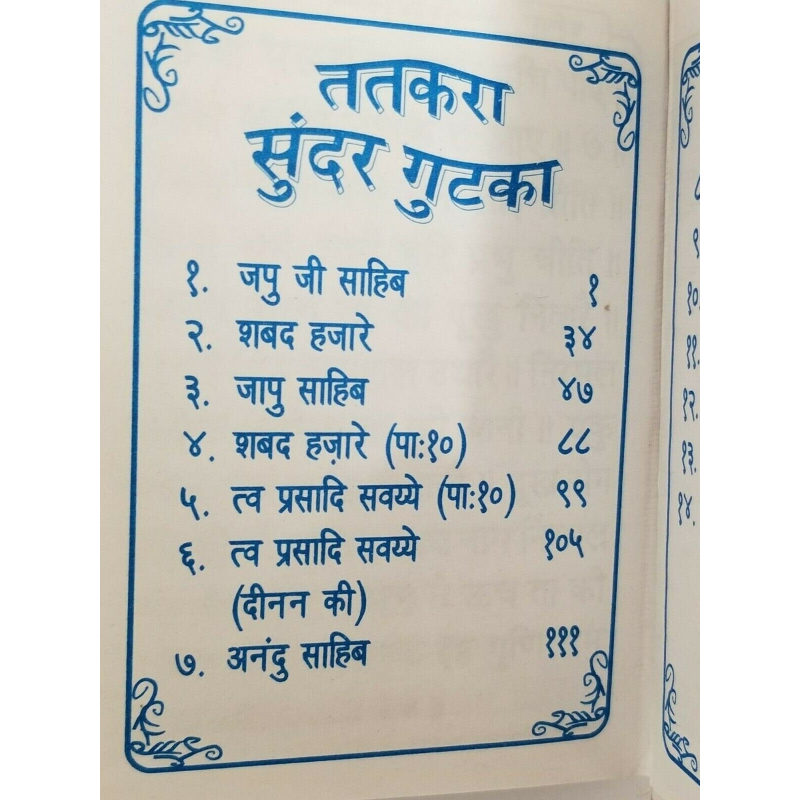 ततकरा
सुंदर गुटका
१. जपु जी साहिब १
२. शबद हजारे ३४
३. जापु साहिब ४७
४. शबद हज़ारे (पाः१०) ८८
५. त्व प्रसादि सवय्ये (पाः१०) ९९
६. त्व प्रसादि सवय्ये १०५
(दीनन की)
७. अनंदु साहिब १११
८
९
१०
११.
१२.
१३.
१४.